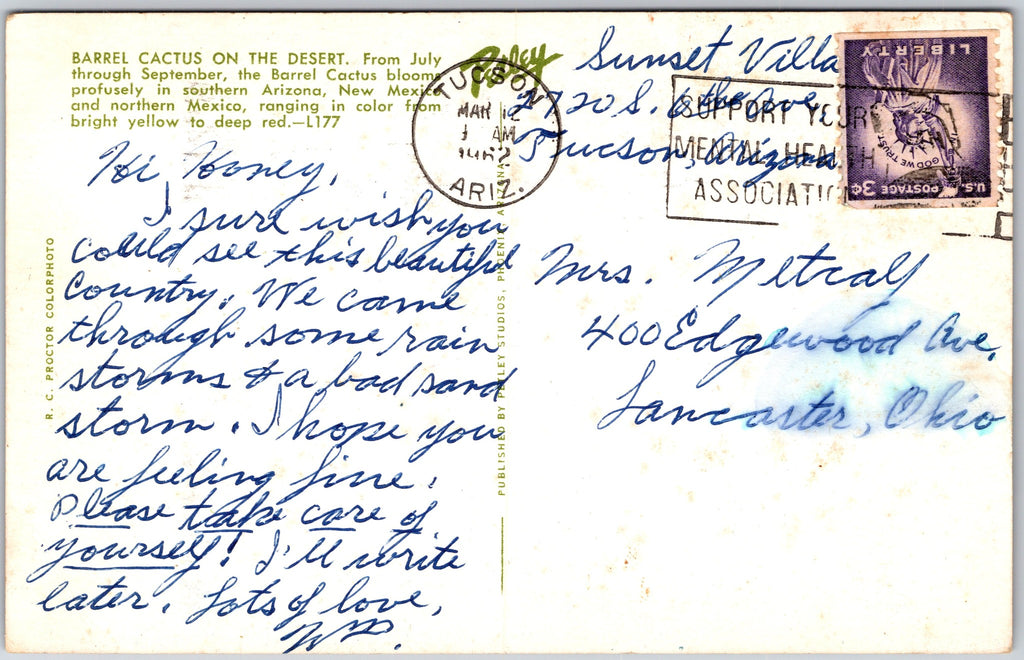 BARREL CACTUS ON THE DESERT. From July
through September, the Barrel Cactus blooms
profusely in southern Arizona, New Mexico
and northern Mexico, ranging in color from
bright yellow to deep red.—L177
Petley
TUCSON
MAR 12
1 AM
1962
ARIZ.
SUPPORT YOUR
MENTAL HEALTH
ASSOCIATIO
LIBERTY
IN GOD WE TRUST
U.S. POSTAGE 3¢
Sunset Villa
2720 S. 6th Ave.
Tucson, Arizona
Hi, Honey,
I sure wish you
could see this beautiful
country. We came
through some rain
storms & a bad sand
storm. I hope you
are feeling fine.
Please take care of
yourself! I'll write
later. Lots of love,
Mrs. Metcalf
400 Edgewood Ave.
Lancaster, Ohio
R. C. PROCTOR COLORPHOTO
PUBLISHED BY PETLEY STUDIOS, PHOENIX, ARIZONA